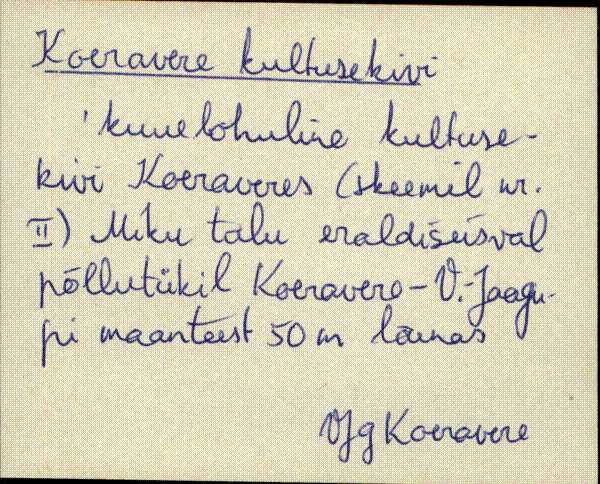 Koeravere kultusekivi
'kuuelohuline kultuse-
kivi Koeraveres (skeemil nr.
II) Miku talu eraldiseisval
põllutükil Koeravere - V.-Jaagu-
pi maanteest 50 m läänas
VJg Koeravere